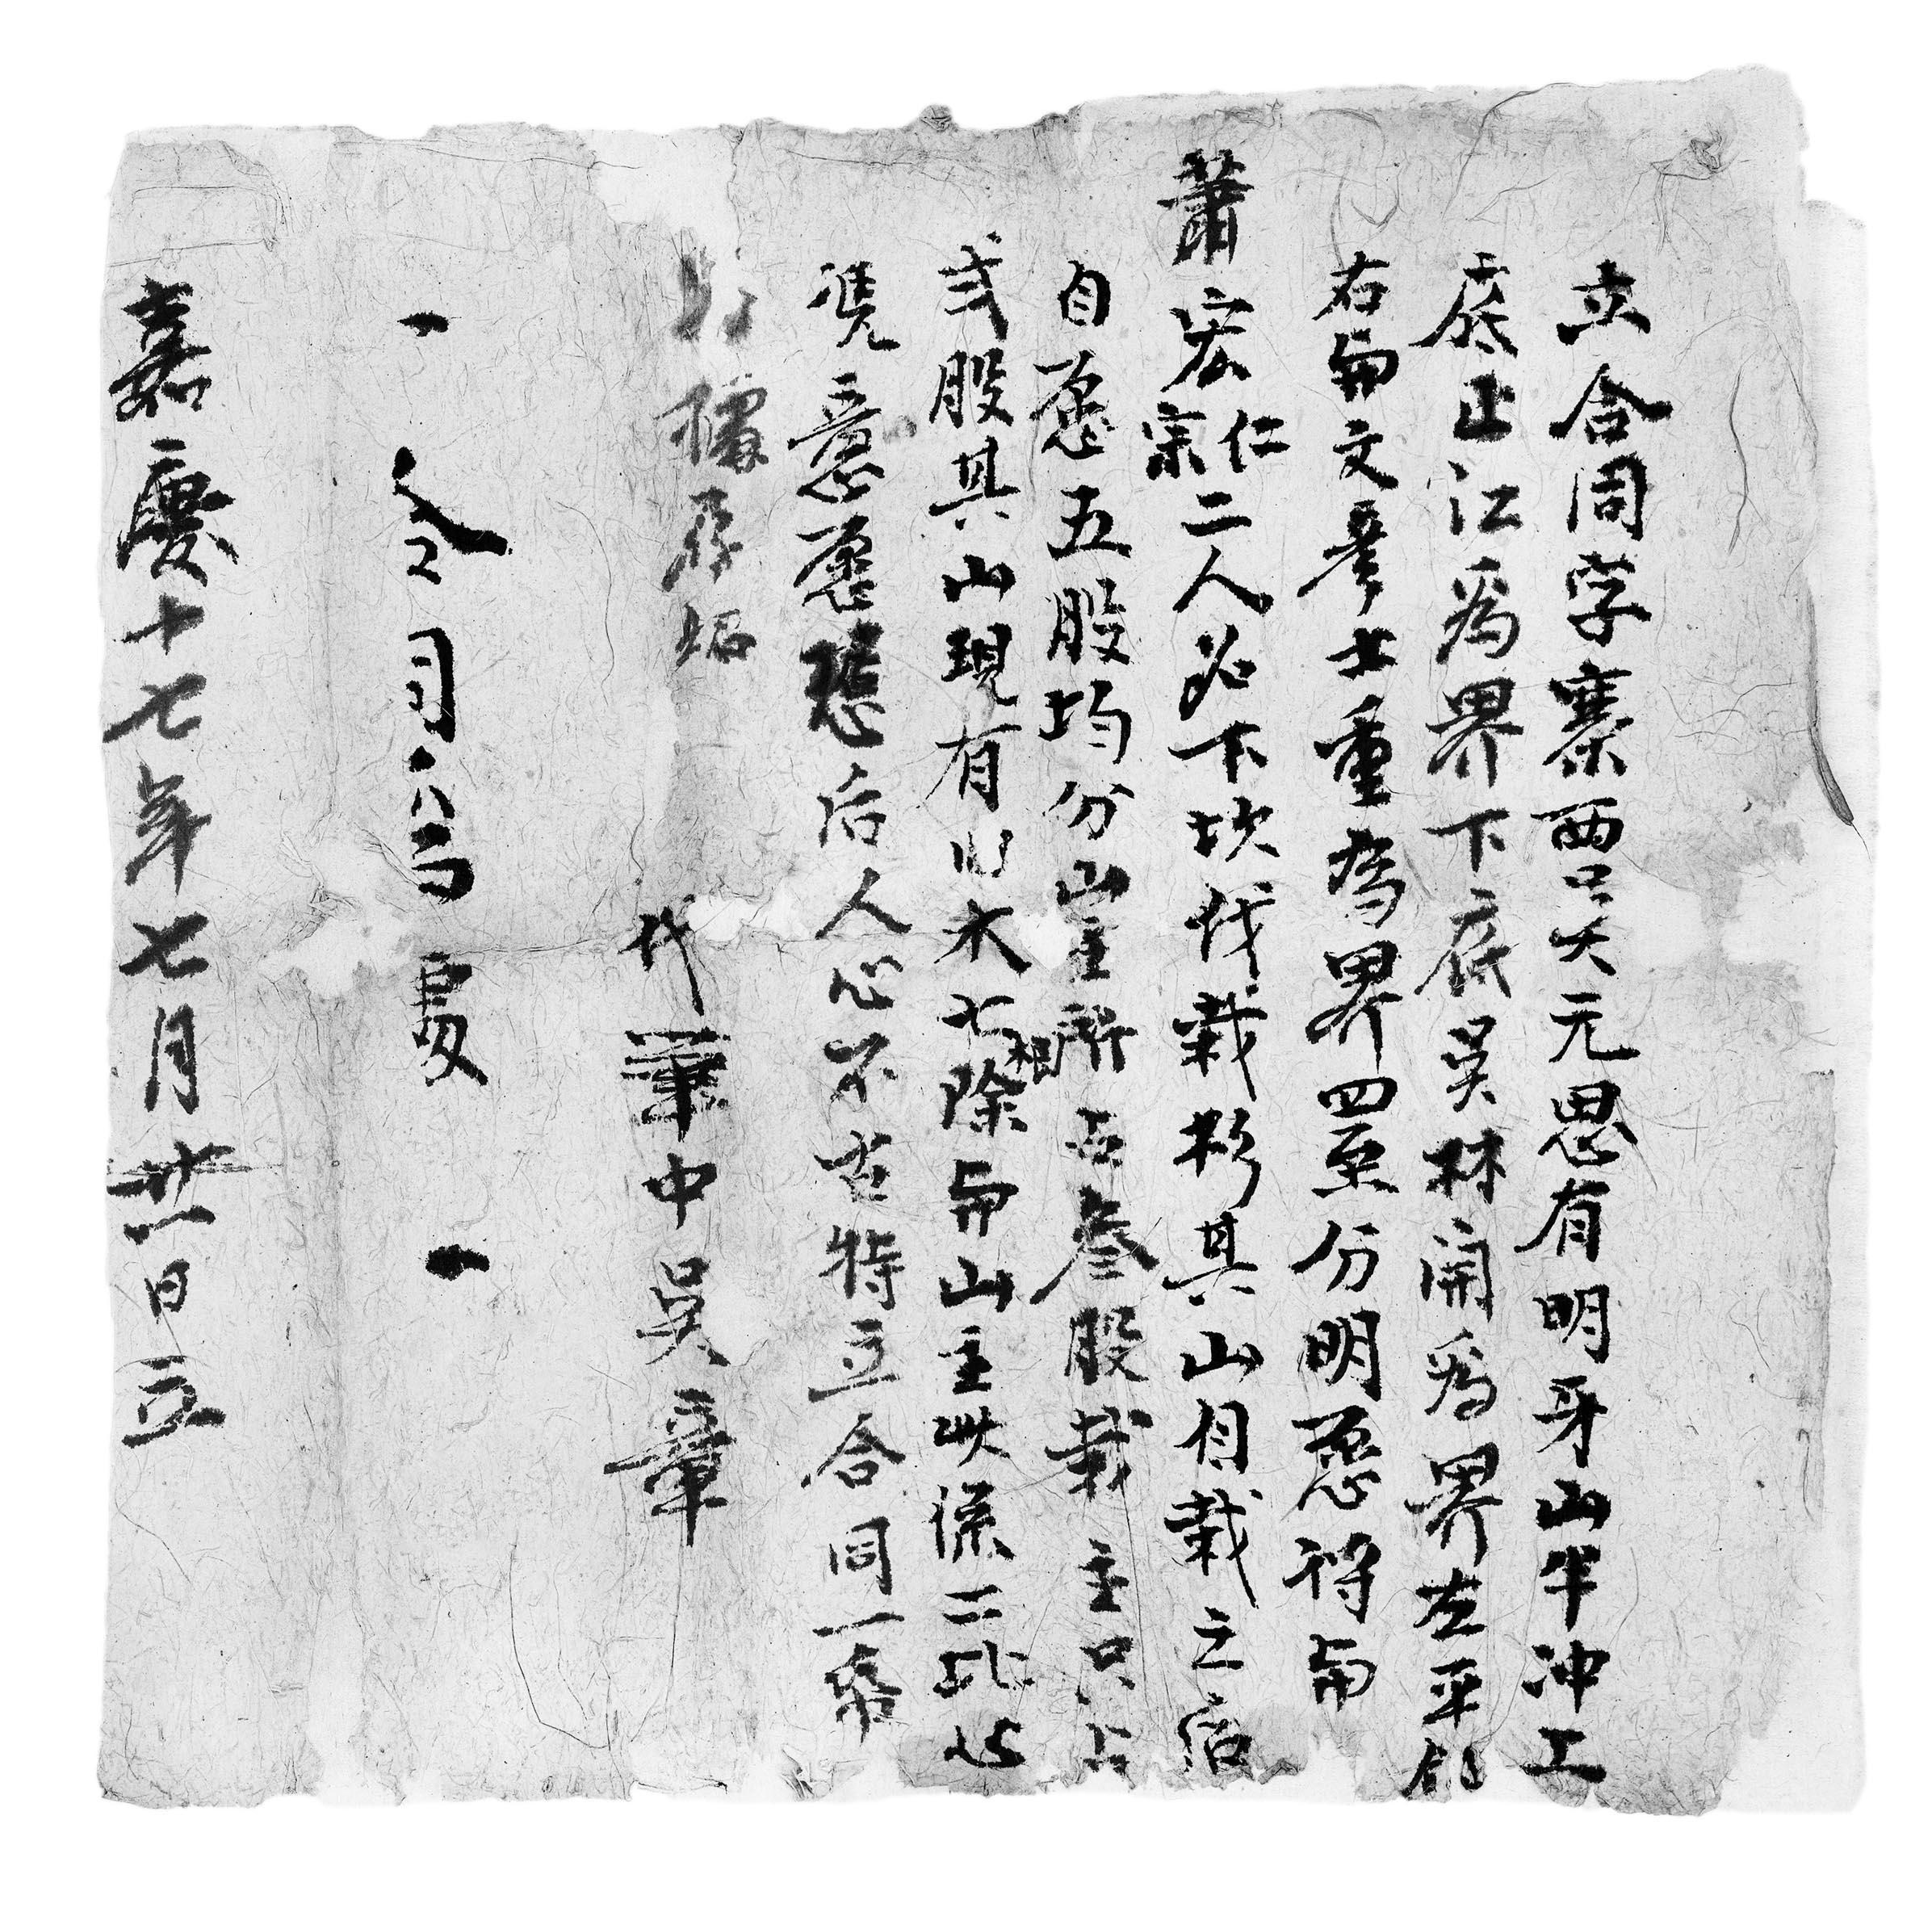 立合同字寨西吴大元思有明牙山半冲工
底止江為界下底吴林開為界左平
右与文彦士重為界四至分明愿将与
萧宏仁宗二人名下坎伐栽杉其山自栽之后
自愿五股均分山主所占叁股栽主只占
弍股其山現有旧木七根除与山主此係二比心
凭意愿恐后人心不古特立合同一帋
攔存照
代筆中吴章
嘉慶十七年七月廿一日立